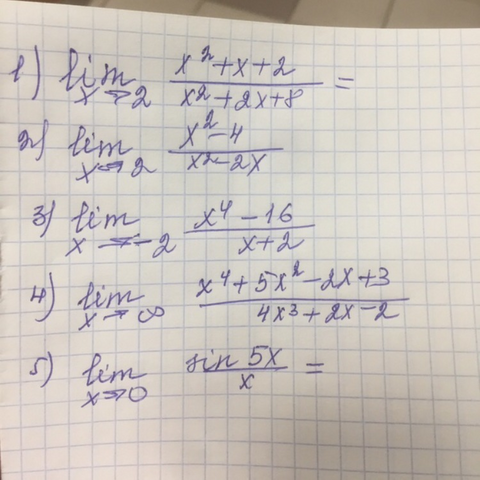 1) lim x→2 (x² + x + 2)/(x² + 2x + 8) =
2) lim x→2 (x² - 4)/(x² - 2x)
3) lim x→-2 (x⁴ - 16)/(x + 2)
4) lim x→∞ (x⁴ + 5x² - 2x + 3)/(4x³ + 2x - 2)
5) lim x→0 (sin 5x)/x =